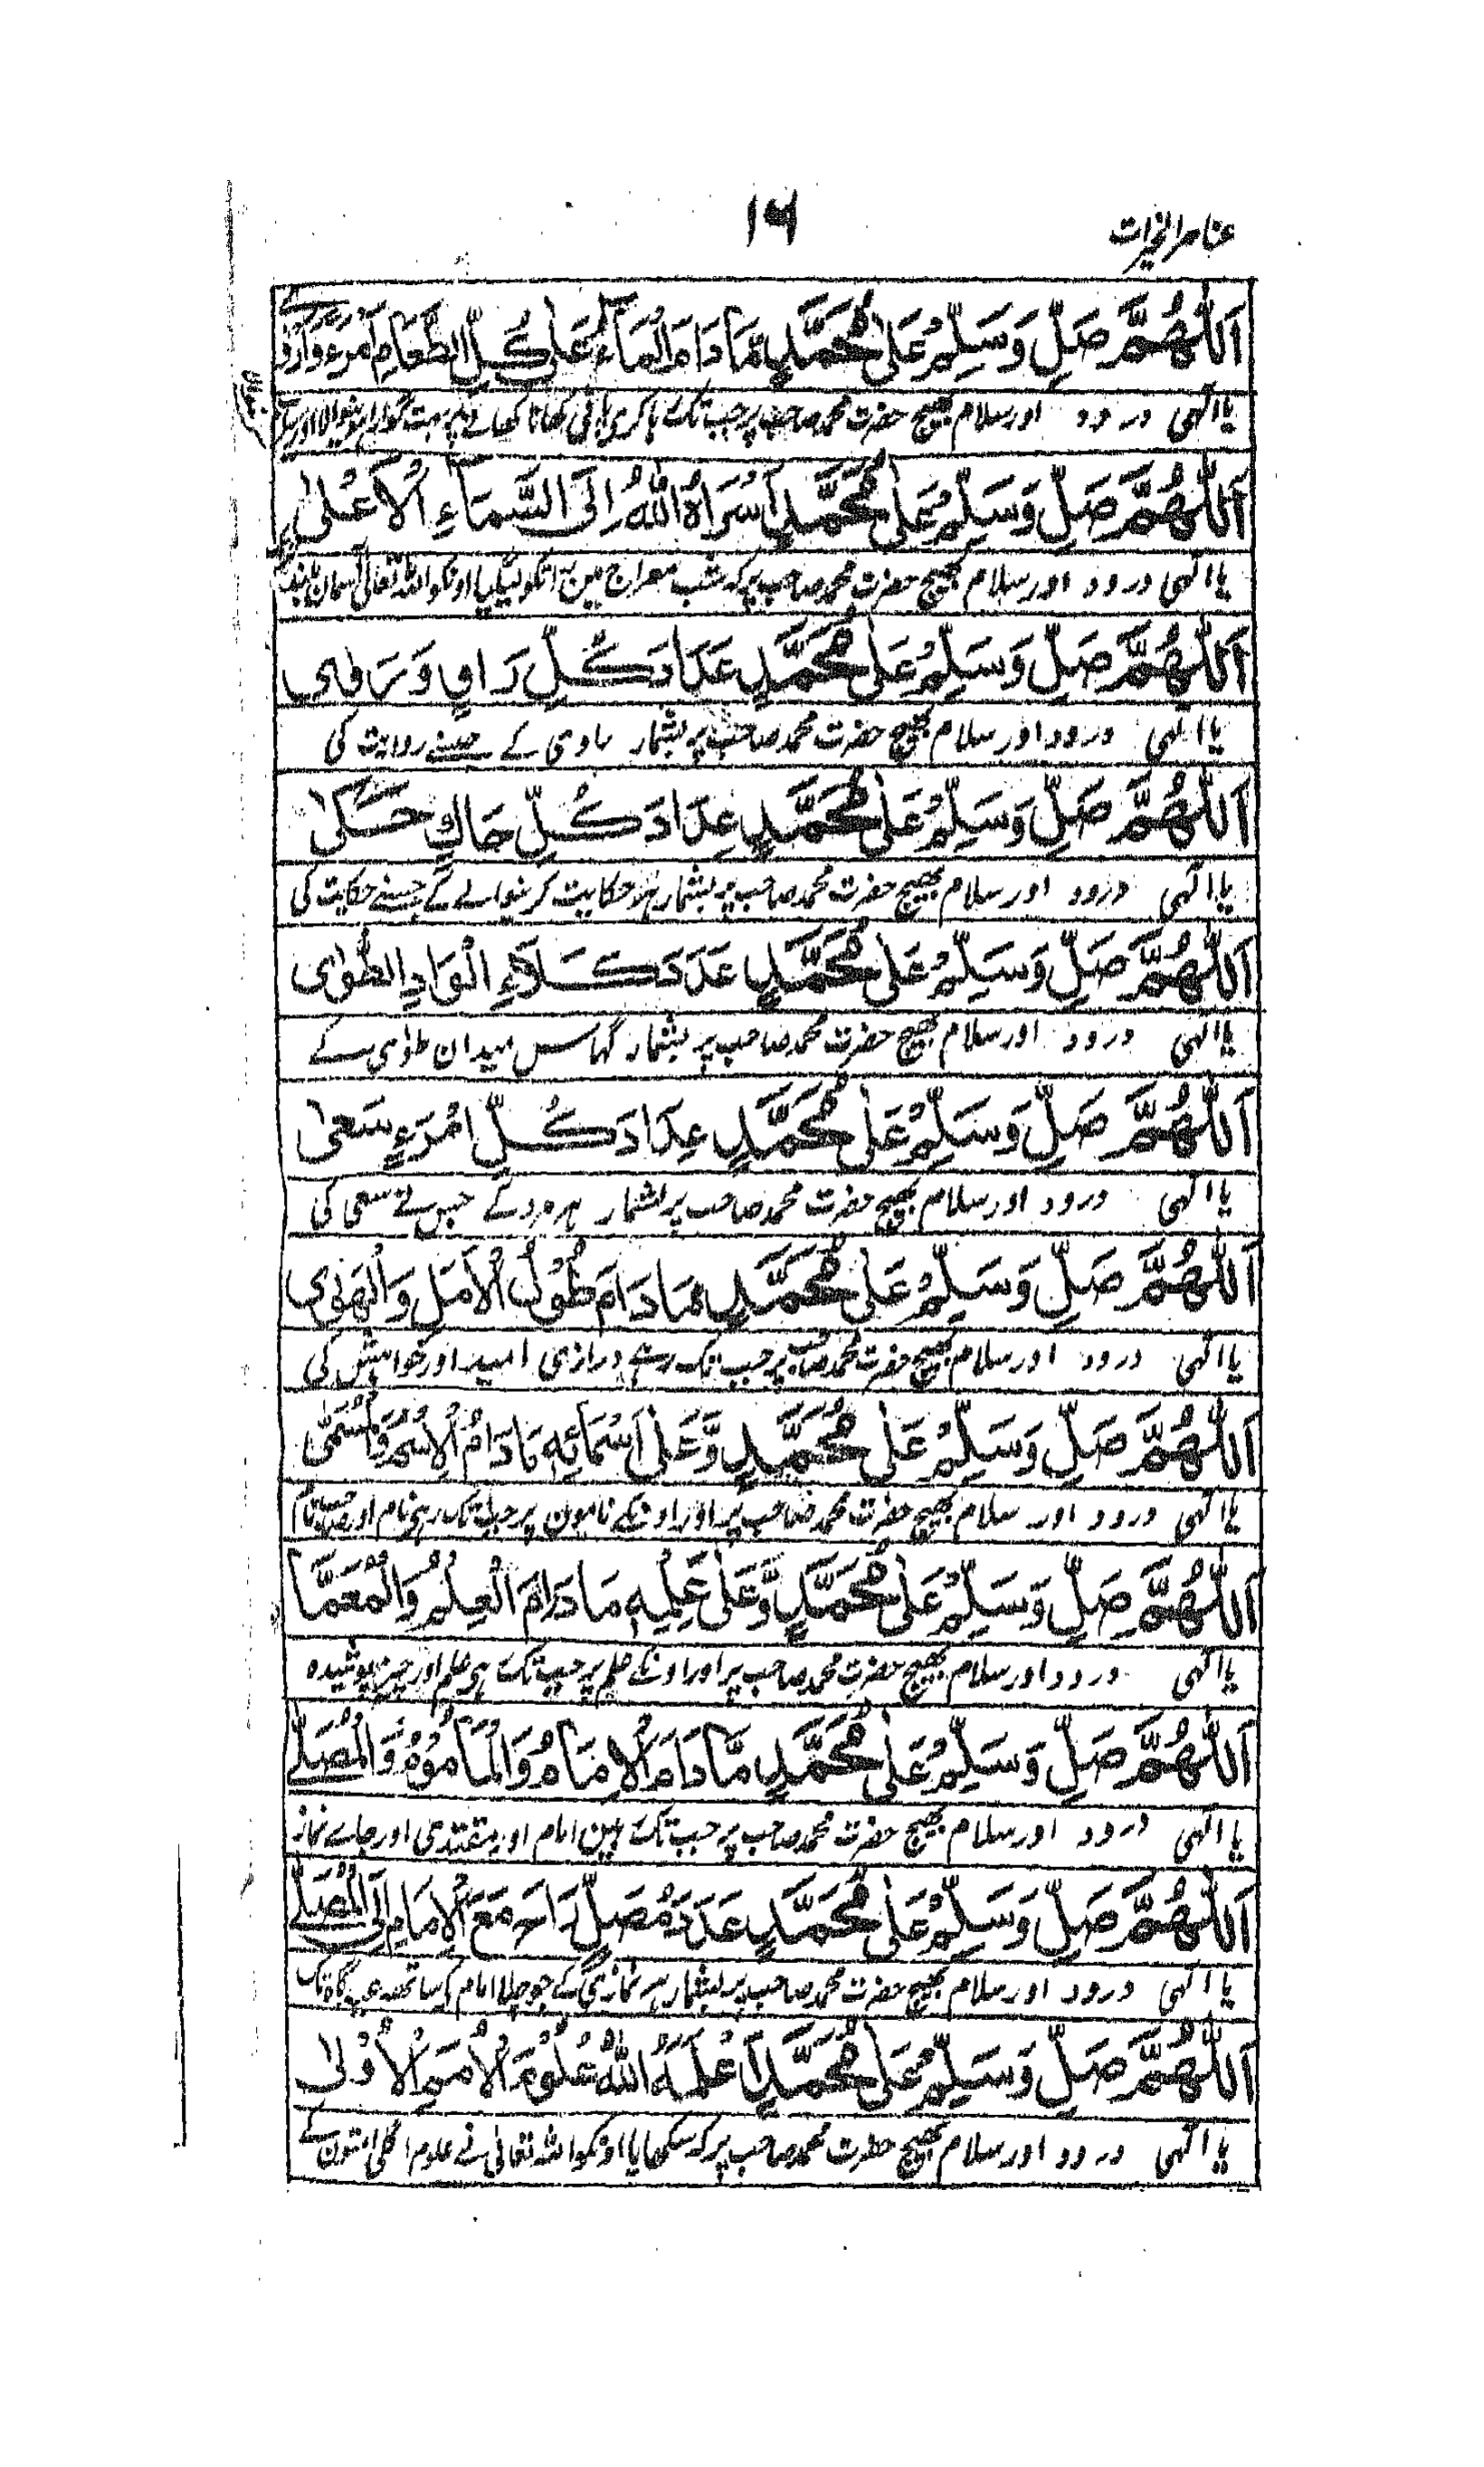 عناصر الخیرات
۱۶
اَللّٰهُمَّ صَلِّ وَسَلِّمْ عَلٰى مُحَمَّدٍ مَّا دَامَ الْمَآءُ عَلٰى كُلِّ الطَّعَامِ اَمْرَءَ وَاَرْوٰى
یا الٰہی درود اور سلام بھیج حضرت محمد صاحب پر جب تک رہا کرے پانی کھانا کھانے پر بہت گوارا ہونیوالا اور
اَللّٰهُمَّ صَلِّ وَسَلِّمْ عَلٰى مُحَمَّدٍ اَسْرَاهُ اللّٰهُ اِلَى السَّمَآءِ الْاَعْلٰى
یا الٰہی درود اور سلام بھیج حضرت محمد صاحب پر کہ شب معراج مین اونکو اللہ تعالی آسمان بلند
اَللّٰهُمَّ صَلِّ وَسَلِّمْ عَلٰى مُحَمَّدٍ عِدَادَ كُلِّ رَاوٍ وَرَوٰى
یا الٰہی درود اور سلام بھیج حضرت محمد صاحب پر بشمار راوی کے جسنے روایت کی
اَللّٰهُمَّ صَلِّ وَسَلِّمْ عَلٰى مُحَمَّدٍ عِدَادَ كُلِّ حَاكٍ حَكٰى
یا الٰہی درود اور سلام بھیج حضرت محمد صاحب پر بشمار ہر حکایت کرنیوالے کے جسنے حکایت کی
اَللّٰهُمَّ صَلِّ وَسَلِّمْ عَلٰى مُحَمَّدٍ عَدَدَ كَلَاءِ الْوَادِ الطُّوٰى
یا الٰہی درود اور سلام بھیج حضرت محمد صاحب پر بشمار گہاس میدان طوٰی کے
اَللّٰهُمَّ صَلِّ وَسَلِّمْ عَلٰى مُحَمَّدٍ عِدَادَ كُلِّ امْرَءٍ سَعٰى
یا الٰہی درود اور سلام بھیج حضرت محمد صاحب پر بشمار ہر مرد کے جس نے سعی کی
اَللّٰهُمَّ صَلِّ وَسَلِّمْ عَلٰى مُحَمَّدٍ مَا دَامَ طُوْلُ الْاَمَلِ وَالْهَوٰى
یا الٰہی درود اور سلام بھیج حضرت محمد صاحب پر جب تک رہے درازی امید اور خواہش کی
اَللّٰهُمَّ صَلِّ وَسَلِّمْ عَلٰى مُحَمَّدٍ وَّعَلٰى اَسْمَائِهٖ مَا دَامُ الْاِسْمُ وَالْمُسَمّٰى
یا الٰہی درود اور سلام بھیج حضرت محمد صاحب پر اور اونکے نامون پر جب تک رہے نام اور صاحب نام
اَللّٰهُمَّ صَلِّ وَسَلِّمْ عَلٰى مُحَمَّدٍ وَّعَلٰى عِلْمِهٖ مَا دَامَ الْعِلْمُ وَالْمُعَمَّا
یا الٰہی درود اور سلام بھیج حضرت محمد صاحب پر اور اونکے علم پر جب تک ہی علم اور چیز پوشیدہ
اَللّٰهُمَّ صَلِّ وَسَلِّمْ عَلٰى مُحَمَّدٍ مَّا دَامَ الْاِمَامُ وَالْمَأْمُوْمُ وَالْمُصَلّٰے
یا الٰہی درود اور سلام بھیج حضرت محمد صاحب پر جب تک ہین امام اور مقتدی اور جاے نماز
اَللّٰهُمَّ صَلِّ وَسَلِّمْ عَلٰى مُحَمَّدٍ عَدَدَ مُصَلٍّ رَاحَ مَعَ الْاِمَامِ اِلَى الْمُصَلّٰے
یا الٰہی درود اور سلام بھیج حضرت محمد صاحب پر بشمار ہر نمازی کے جو چلا امام کے ساتھ عیدگاہ تک
اَللّٰهُمَّ صَلِّ وَسَلِّمْ عَلٰى مُحَمَّدٍ اَعْلَمَهُ اللّٰهُ عُلُوْمَ الْاُمَمِ الْاُوْلٰى
یا الٰہی درود اور سلام بھیج حضرت محمد صاحب پر کہ سکھایا اونکو اللہ تعالی نے علوم اگلی امتون کے